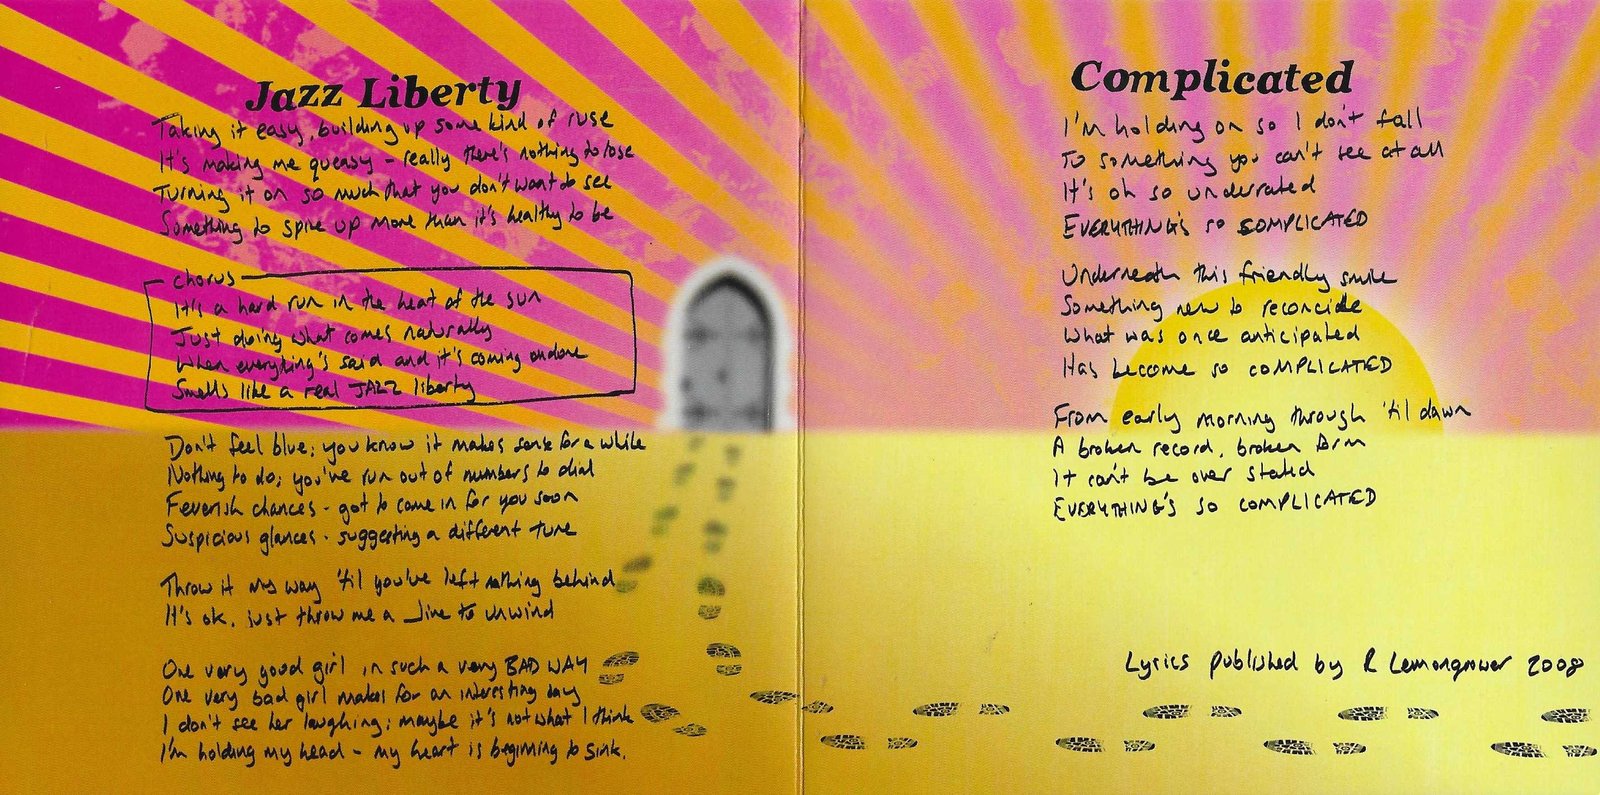 Jazz Liberty
Taking it easy, building up some kind of ruse
It's making me queasy - really there's nothing to lose
Turning it on so much that you don't want to see
Something to spice up more than it's healthy to be
chorus
It's a hard run in the heat of the sun
Just doing what comes naturally
When everything's said and it's coming undone
Smells like a real JAZZ liberty
Don't feel blue; you know it makes sense for a while
Nothing to do; you've run out of numbers to dial
Feverish chances - got to come in for you soon
Suspicious glances - suggesting a different tune
Throw it my way 'til you've left nothing behind
It's ok, just throw me a line to unwind
One very good girl in such a very BAD WAY
One very bad girl makes for an interesting day
I don't see her laughing; maybe it's not what I think
I'm holding my head - my heart is beginning to sink.
Complicated
I'm holding on so I don't fall
To something you can't see at all
It's oh so underrated
EVERYTHING'S so COMPLICATED
Underneath this friendly smile
Something new to reconcile
What was once anticipated
Has become so COMPLICATED
From early morning through 'til dawn
A broken record, broken form
It can't be over stated
EVERYTHING'S so COMPLICATED
Lyrics published by R Lemongrower 2008